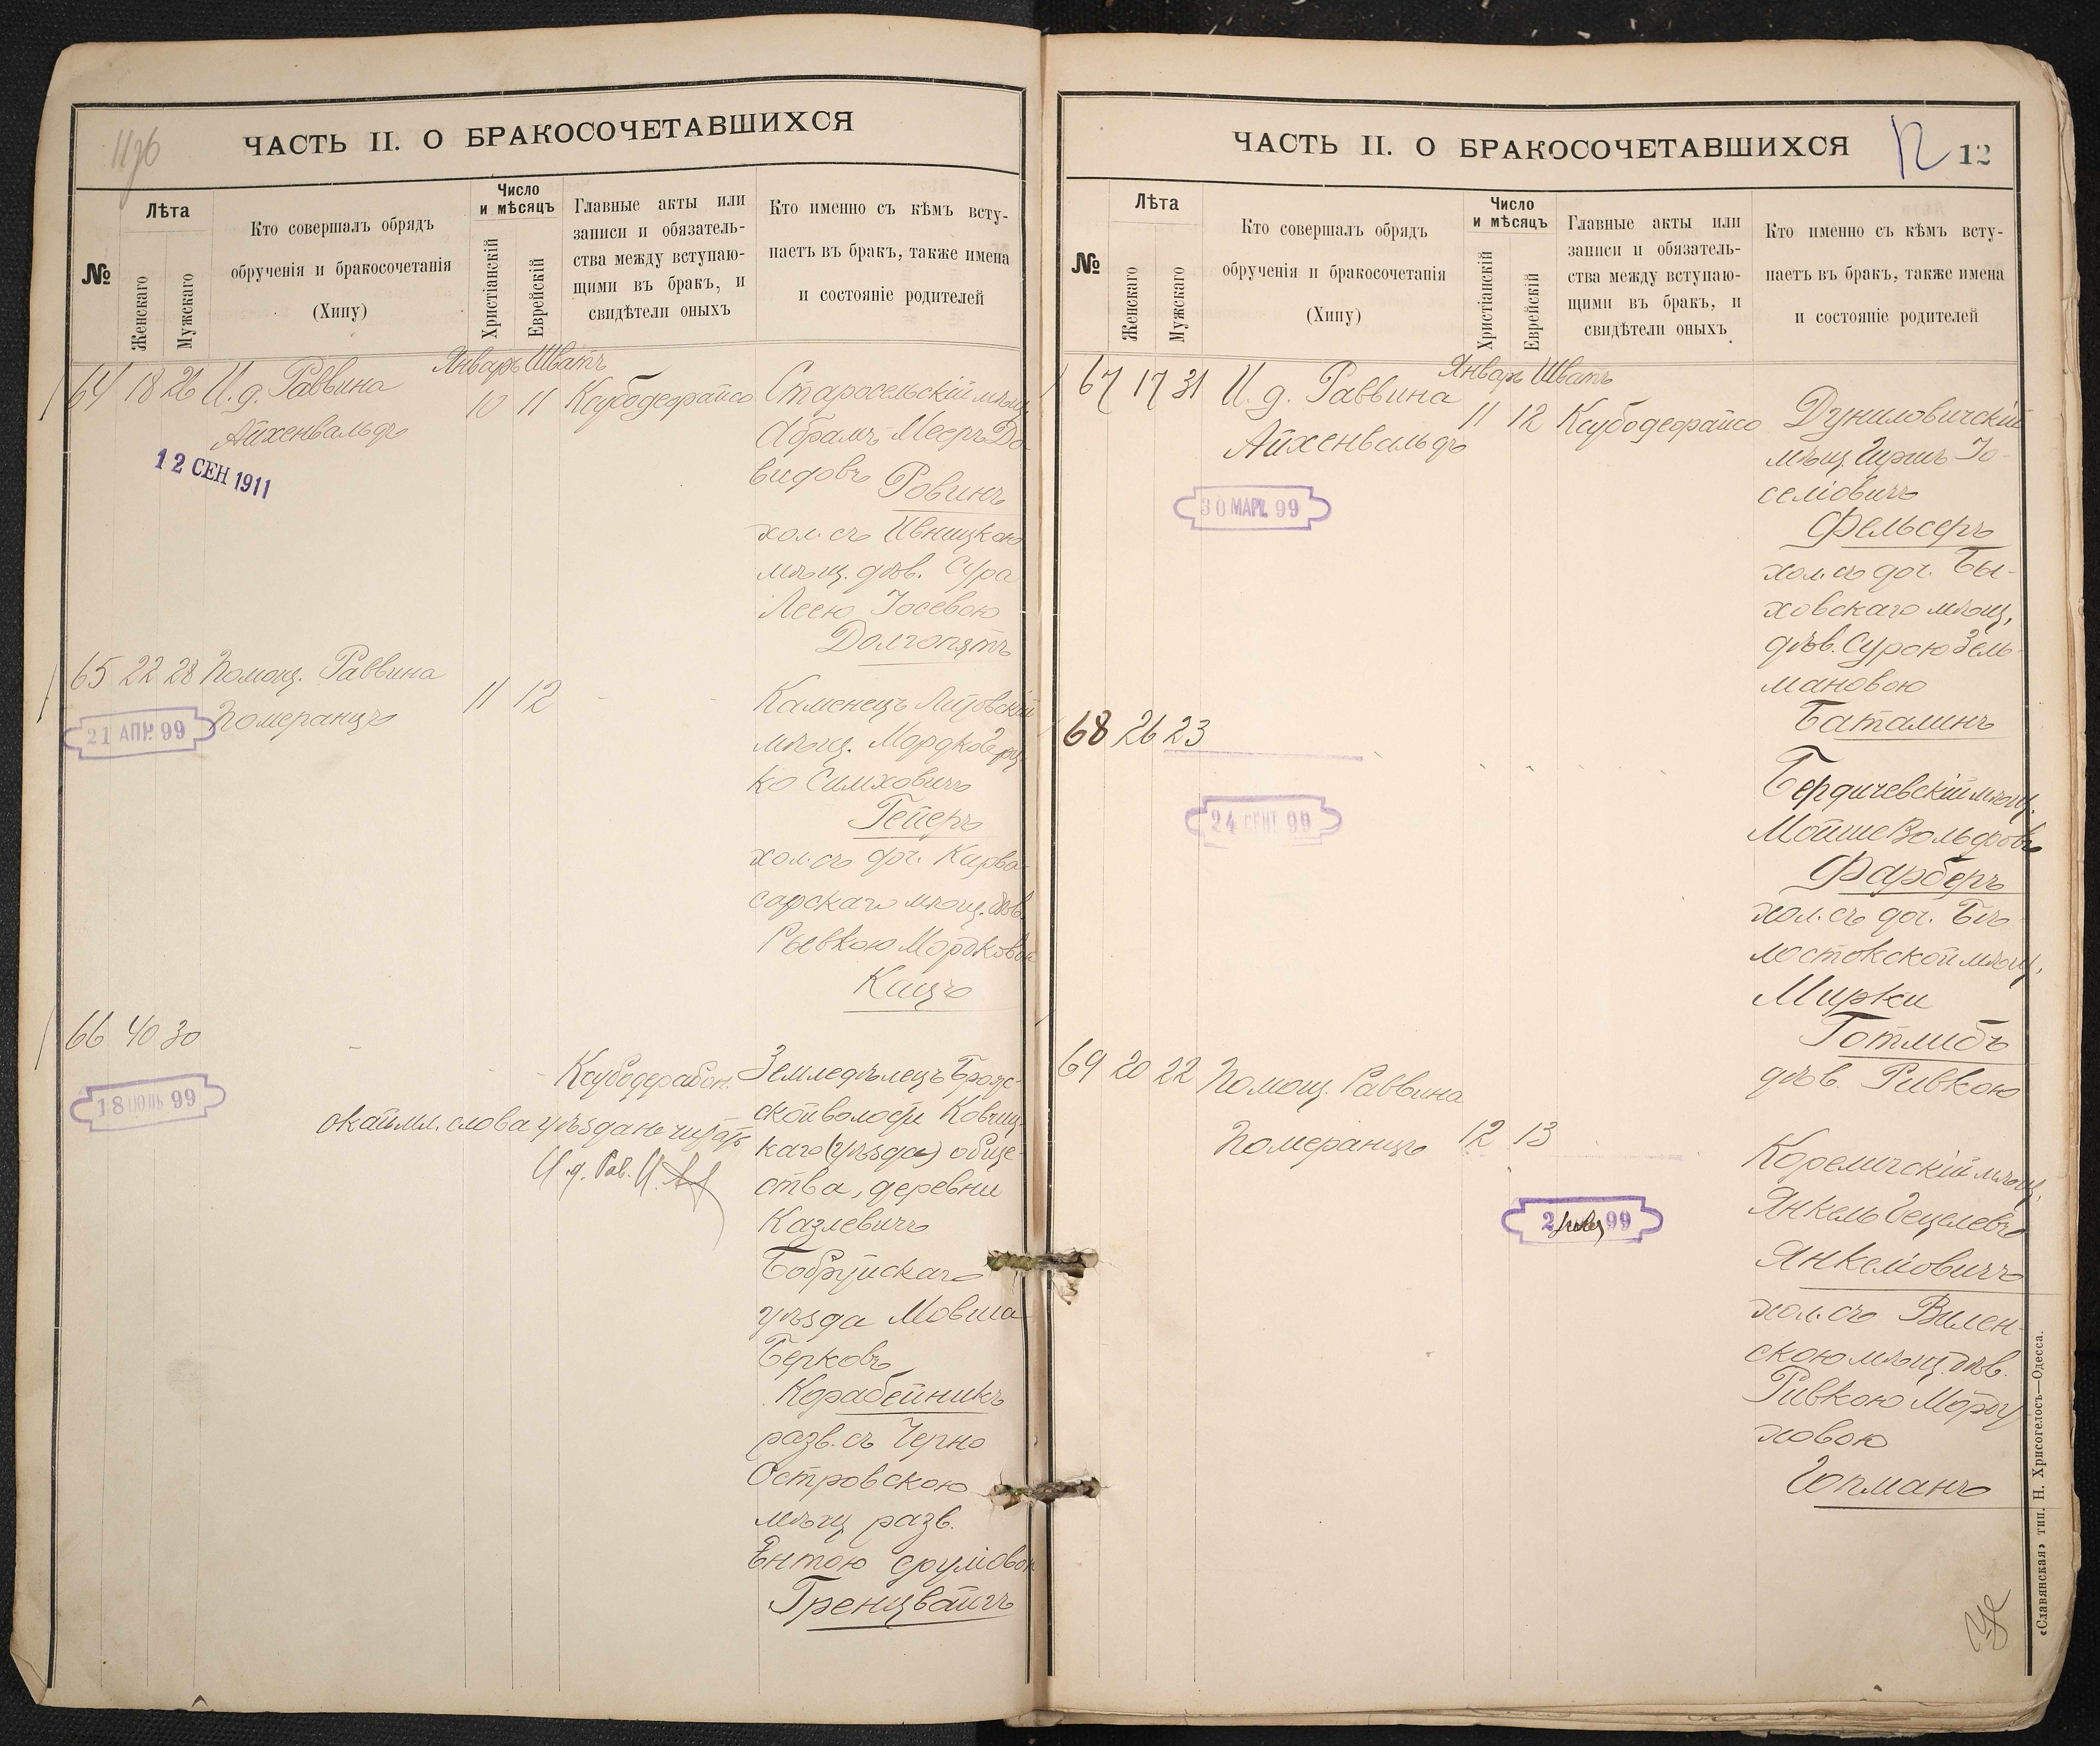 1196
ЧАСТЬ II. О БРАКОСОЧЕТАВШИХСЯ
№
Лѣта
Женскаго
Мужскаго
Кто совершалъ обрядъ
обрученія и бракосочетанія
(Хипу)
Число
и мѣсяцъ
Христіанскій
Еврейскій
Главные акты или
записи и обязатель-
ства между вступаю-
щими въ бракъ, и
свидѣтели оныхъ
Кто именно съ кѣмъ всту-
паетъ въ бракъ, также имена
и состояніе родителей
Январь Шватъ
64 18 26 И. д. Раввина
Айхенвальдъ
10 11 Ксубодерайсо
12 СЕН 1911
Старосельскій мѣщ.
Абрамъ Мееръ До-
видовъ Ровинъ
хол. съ Ивницкою
мѣщ. дѣв. Сура
Леею Іосевою
Долгопятъ
65 22 28 Помощ. Раввина
Померанцъ
11 12
21 АПР. 99
Каменецъ Литовскій
мѣщ. Мордко
ко Симховичъ
Гейеръ
хол. съ доч. Кирва-
сарскаго мѣщ. дѣв.
Рывкою Мордковою
Кацъ
66 40 30
Ксубодерабон.
18 ІЮЛЬ 99
окаймл. слова уѣзда не читать
И. д. Рав.
Земледѣлецъ Брож-
ской волости Ковчиц-
каго (уѣзда) обще-
ства, деревни
Казлевичъ
Бобруйскаго
уѣзда Мовша
Берковъ
Корабейникъ
разв. съ Черно
Островскою
мѣщ. разв.
Ентою Сруліовою
Гренцвайгъ
ЧАСТЬ II. О БРАКОСОЧЕТАВШИХСЯ
12
12
№
Лѣта
Женскаго
Мужскаго
Кто совершалъ обрядъ
обрученія и бракосочетанія
(Хипу)
Число
и мѣсяцъ
Христіанскій
Еврейскій
Главные акты или
записи и обязатель-
ства между вступаю-
щими въ бракъ, и
свидѣтели оныхъ
Кто именно съ кѣмъ всту-
паетъ въ бракъ, также имена
и состояніе родителей
Январь Шватъ
67 17 31 И. д. Раввина
Айхенвальдъ
11 12 Ксубодерайсо
30 МАР. 99
Дуниловичскій
мѣщ. Гиршъ Іо-
селіовичъ
Фельсеръ
хол. съ доч. Бы-
ховскаго мѣщ.
дѣв. Сурою Зель-
мановою
Баталинъ
68 26 23
24 СЕНТ 99
Бердичевскій мѣщ.
Мойше Вольфовъ
Фарберъ
хол. съ доч. Бѣ-
лостокской мѣщ.
Мирки
Готлибъ
дѣв. Ривкою
69 20 22 Помощ. Раввина
Померанцъ 12 13
2 99
Кореличскій мѣщ.
Янкель Гецелевъ
Янкеліовичъ
хол. съ Вилен-
скою мѣщ. дѣв.
Ривкою Морду-
ховою
Гопманъ
«Славянская» тип. Н. Хрисогелосъ—Одесса.